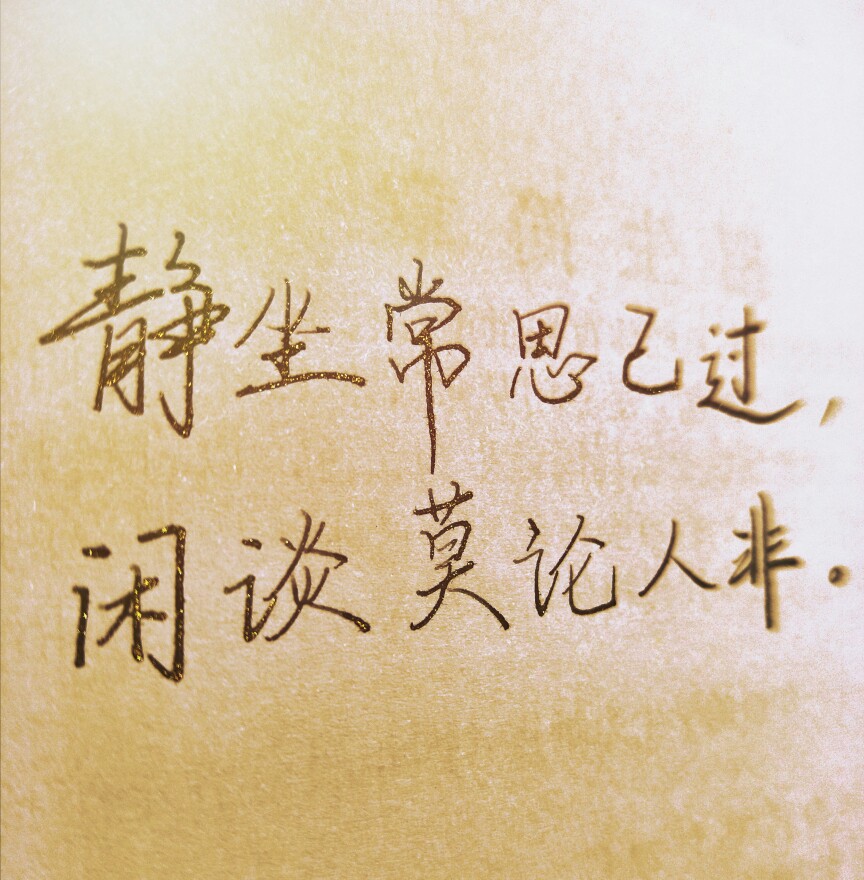 静坐常思己过，
闲谈莫论人非。